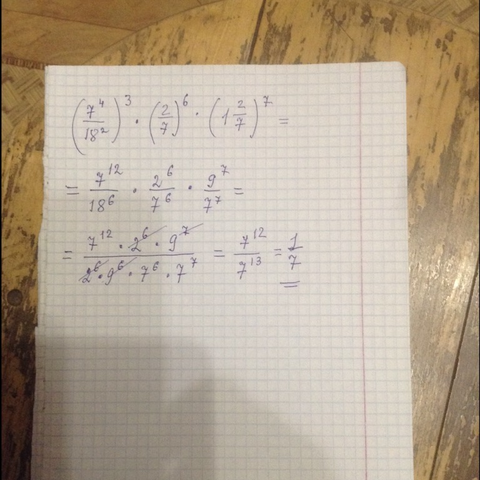 (7⁴/18²)³ · (2/7)⁶ · (1 2/7)⁷ =
= 7¹²/18⁶ · 2⁶/7⁶ · 9⁷/7⁷ =
= (7¹² · 2⁶ · 9⁷)/(2⁶ · 9⁶ · 7⁶ · 7⁷) = 7¹²/7¹³ = 1/7